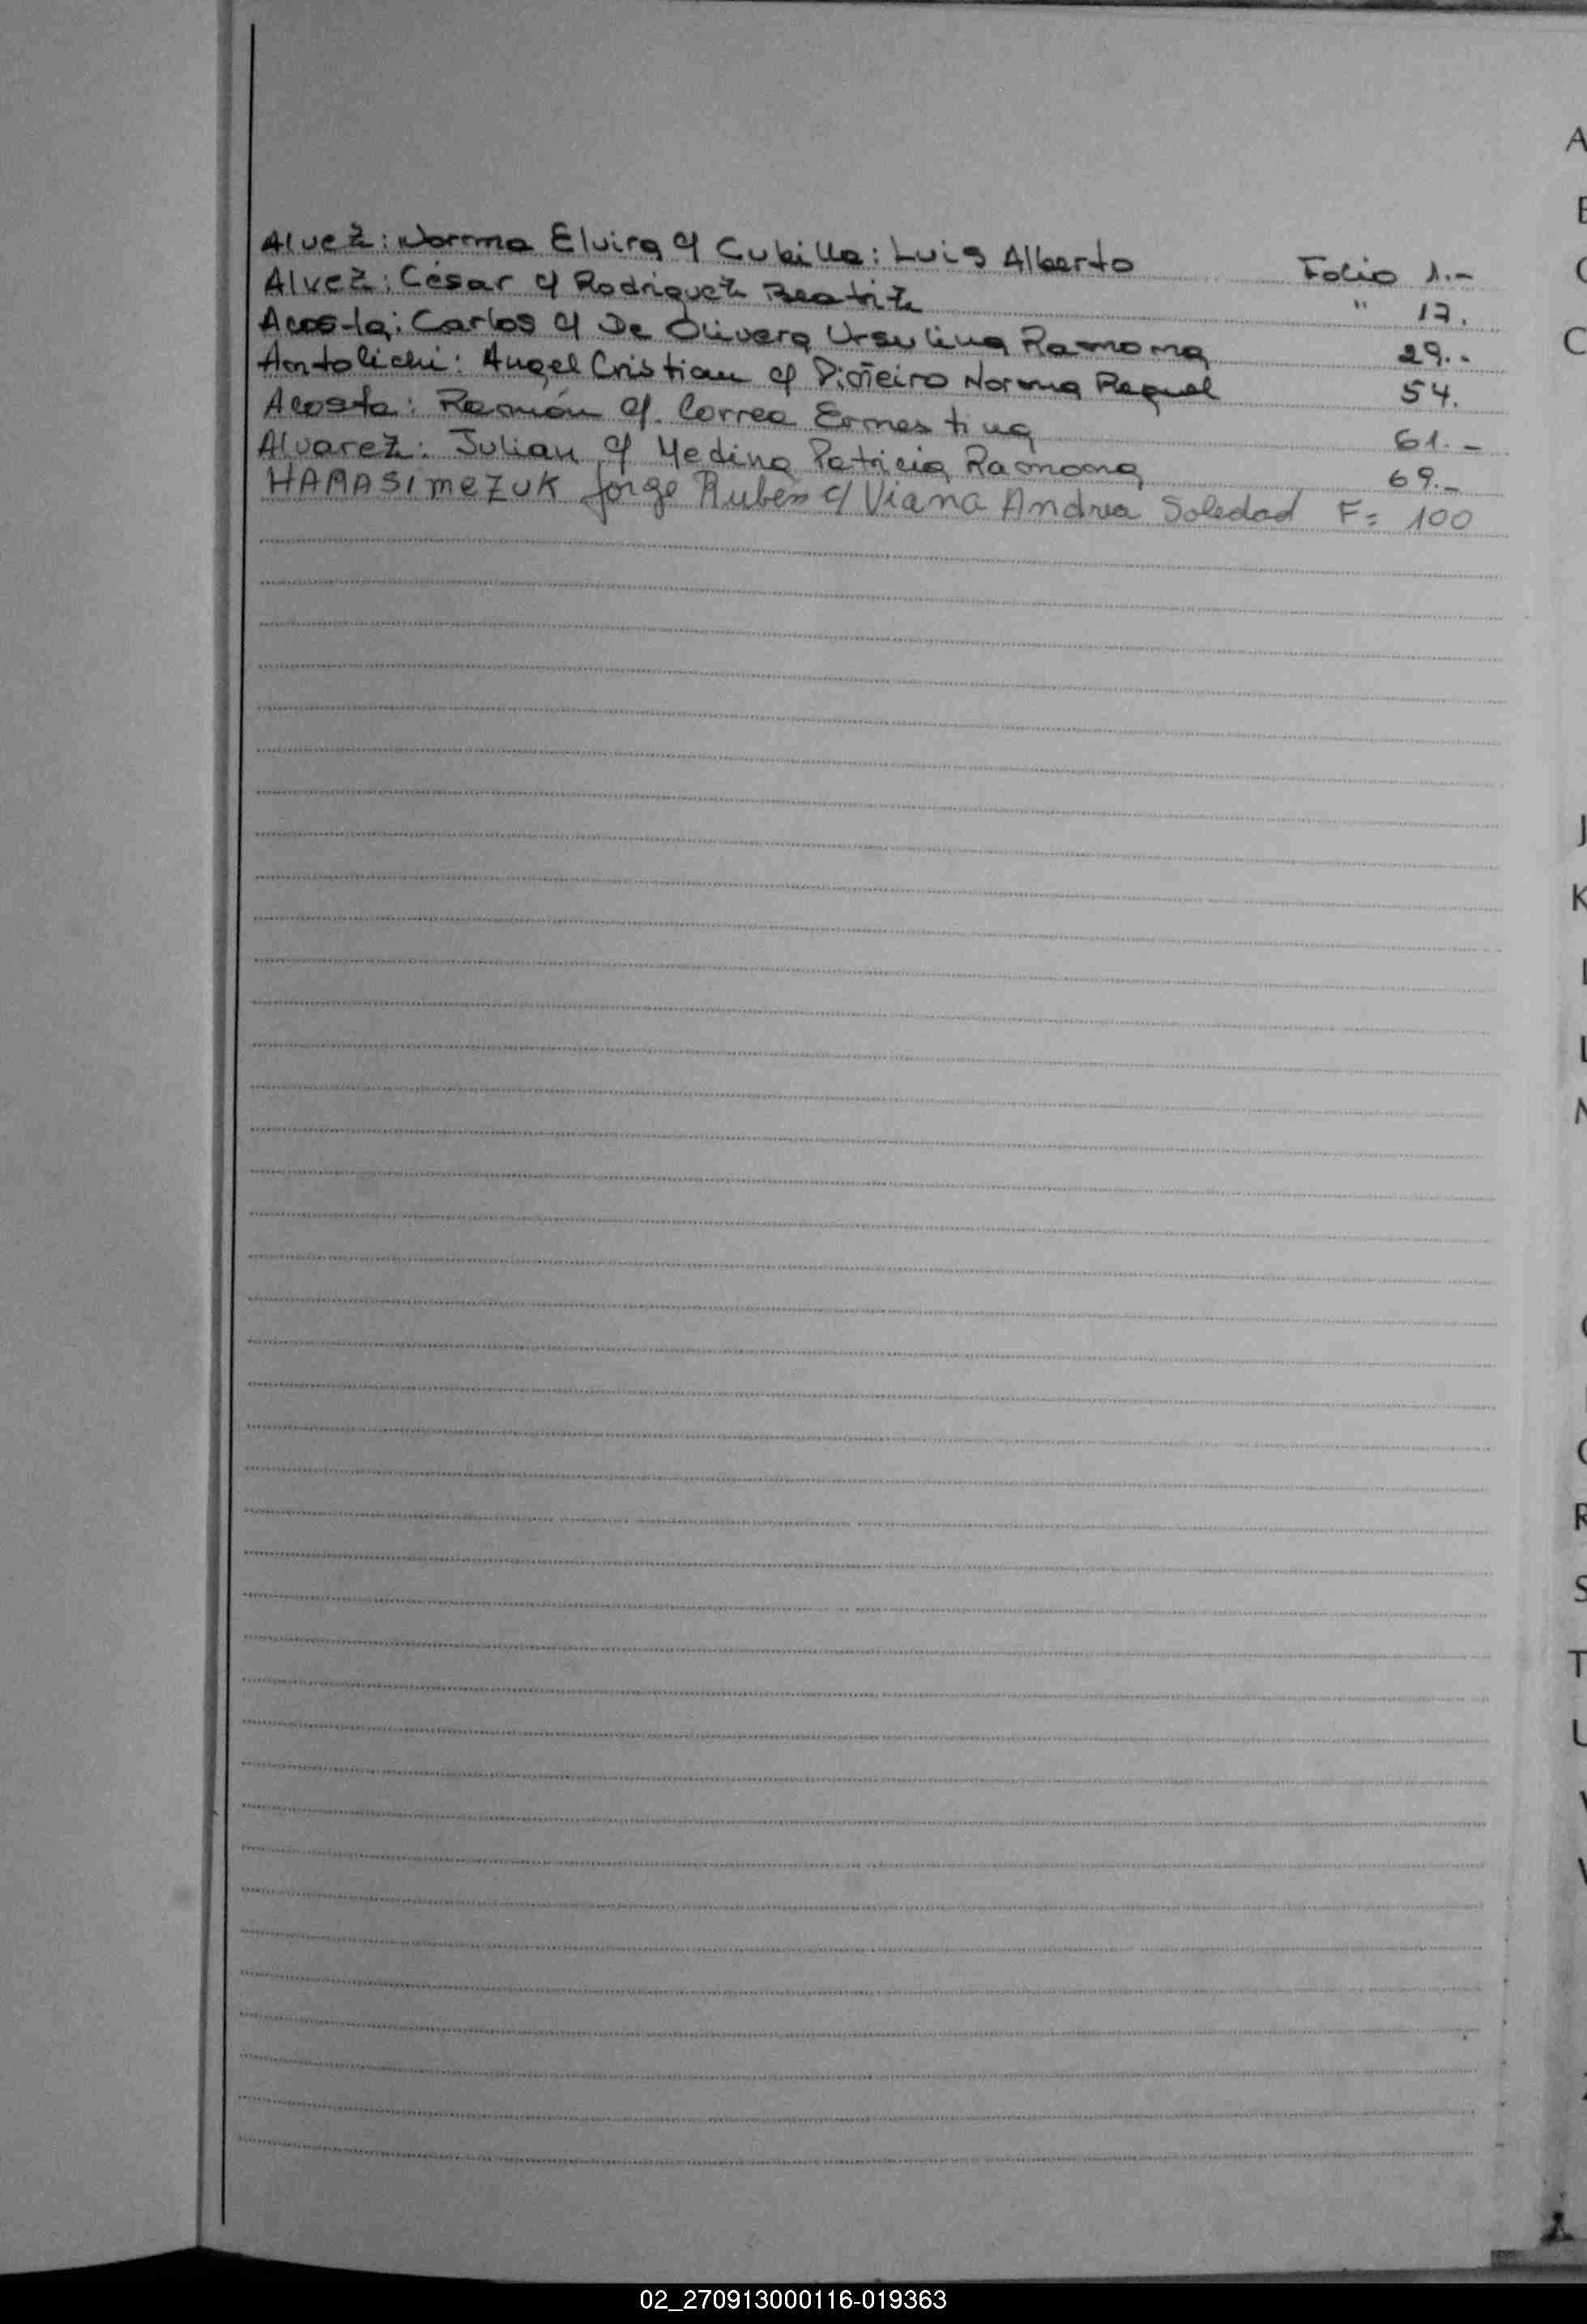 Alvez: Norma Elvira c/ Cubilla: Luis Alberto Folio 1.-
Alvez: César c/ Rodriguez Beatriz " 17.
Acosta: Carlos c/ De Olivera Ursulina Ramona 29.-
Antolichi: Angel Cristian c/ Piñeiro Norma Raquel 54.
Acosta: Ramón c/. Correa Ernestina 61.-
Alvarez: Julian c/ Medina Patricia Ramona 69.-
HARASimezuk Jorge Rubén c/ Viana Andrea Soledad F= 100
A
C
J
K
L
R
S
T
U
02_270913000116-019363